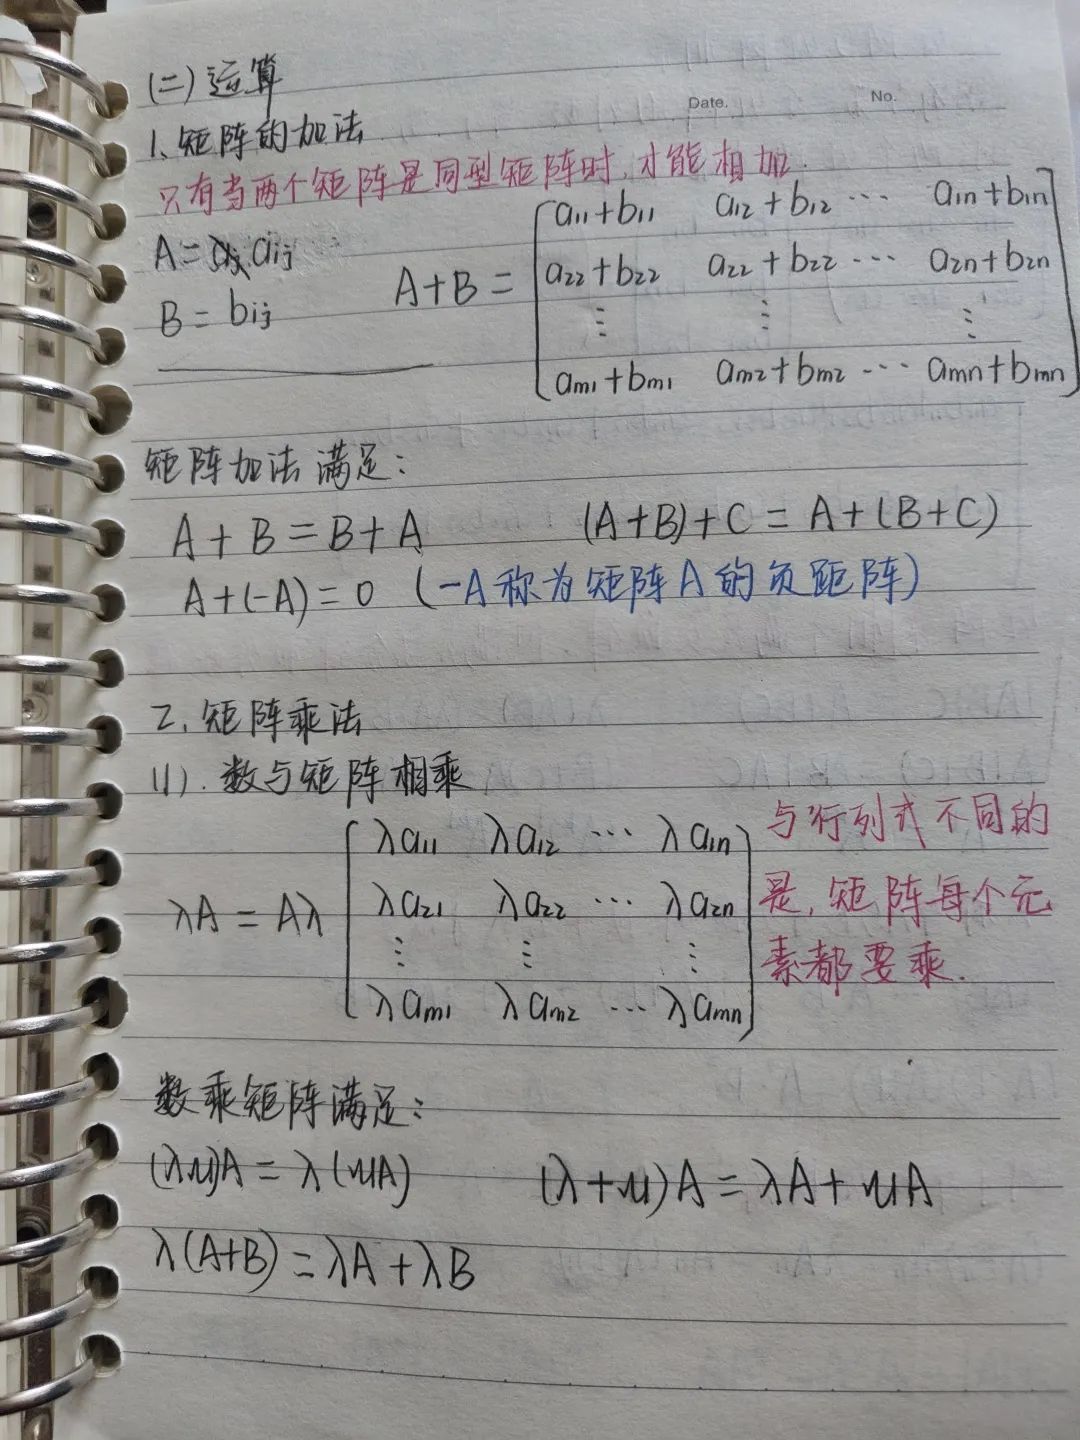 (二) 运算
Date. No.
1、矩阵的加法
只有当两个矩阵是同型矩阵时,才能相加.
A = aij
B = bij
A+B = [ a11+b11 a12+b12 ··· a1n+b1n
a22+b22 a22+b22 ··· a2n+b2n
⋮ ⋮ ⋮
am1+bm1 am2+bm2 ··· amn+bmn ]
矩阵加法满足:
A+B=B+A (A+B)+C = A+(B+C)
A+(-A)=0 (-A称为矩阵A的负距阵)
2、矩阵乘法
(1).数与矩阵相乘
λA = Aλ [ λa11 λa12 ··· λa1n
λa21 λa22 ··· λa2n
⋮ ⋮ ⋮
λam1 λam2 ··· λamn ]
与行列式不同的
是,矩阵每个元
素都要乘.
数乘矩阵满足:
(λμ)A = λ(μA) (λ+μ)A = λA+μA
λ(A+B) = λA+λB